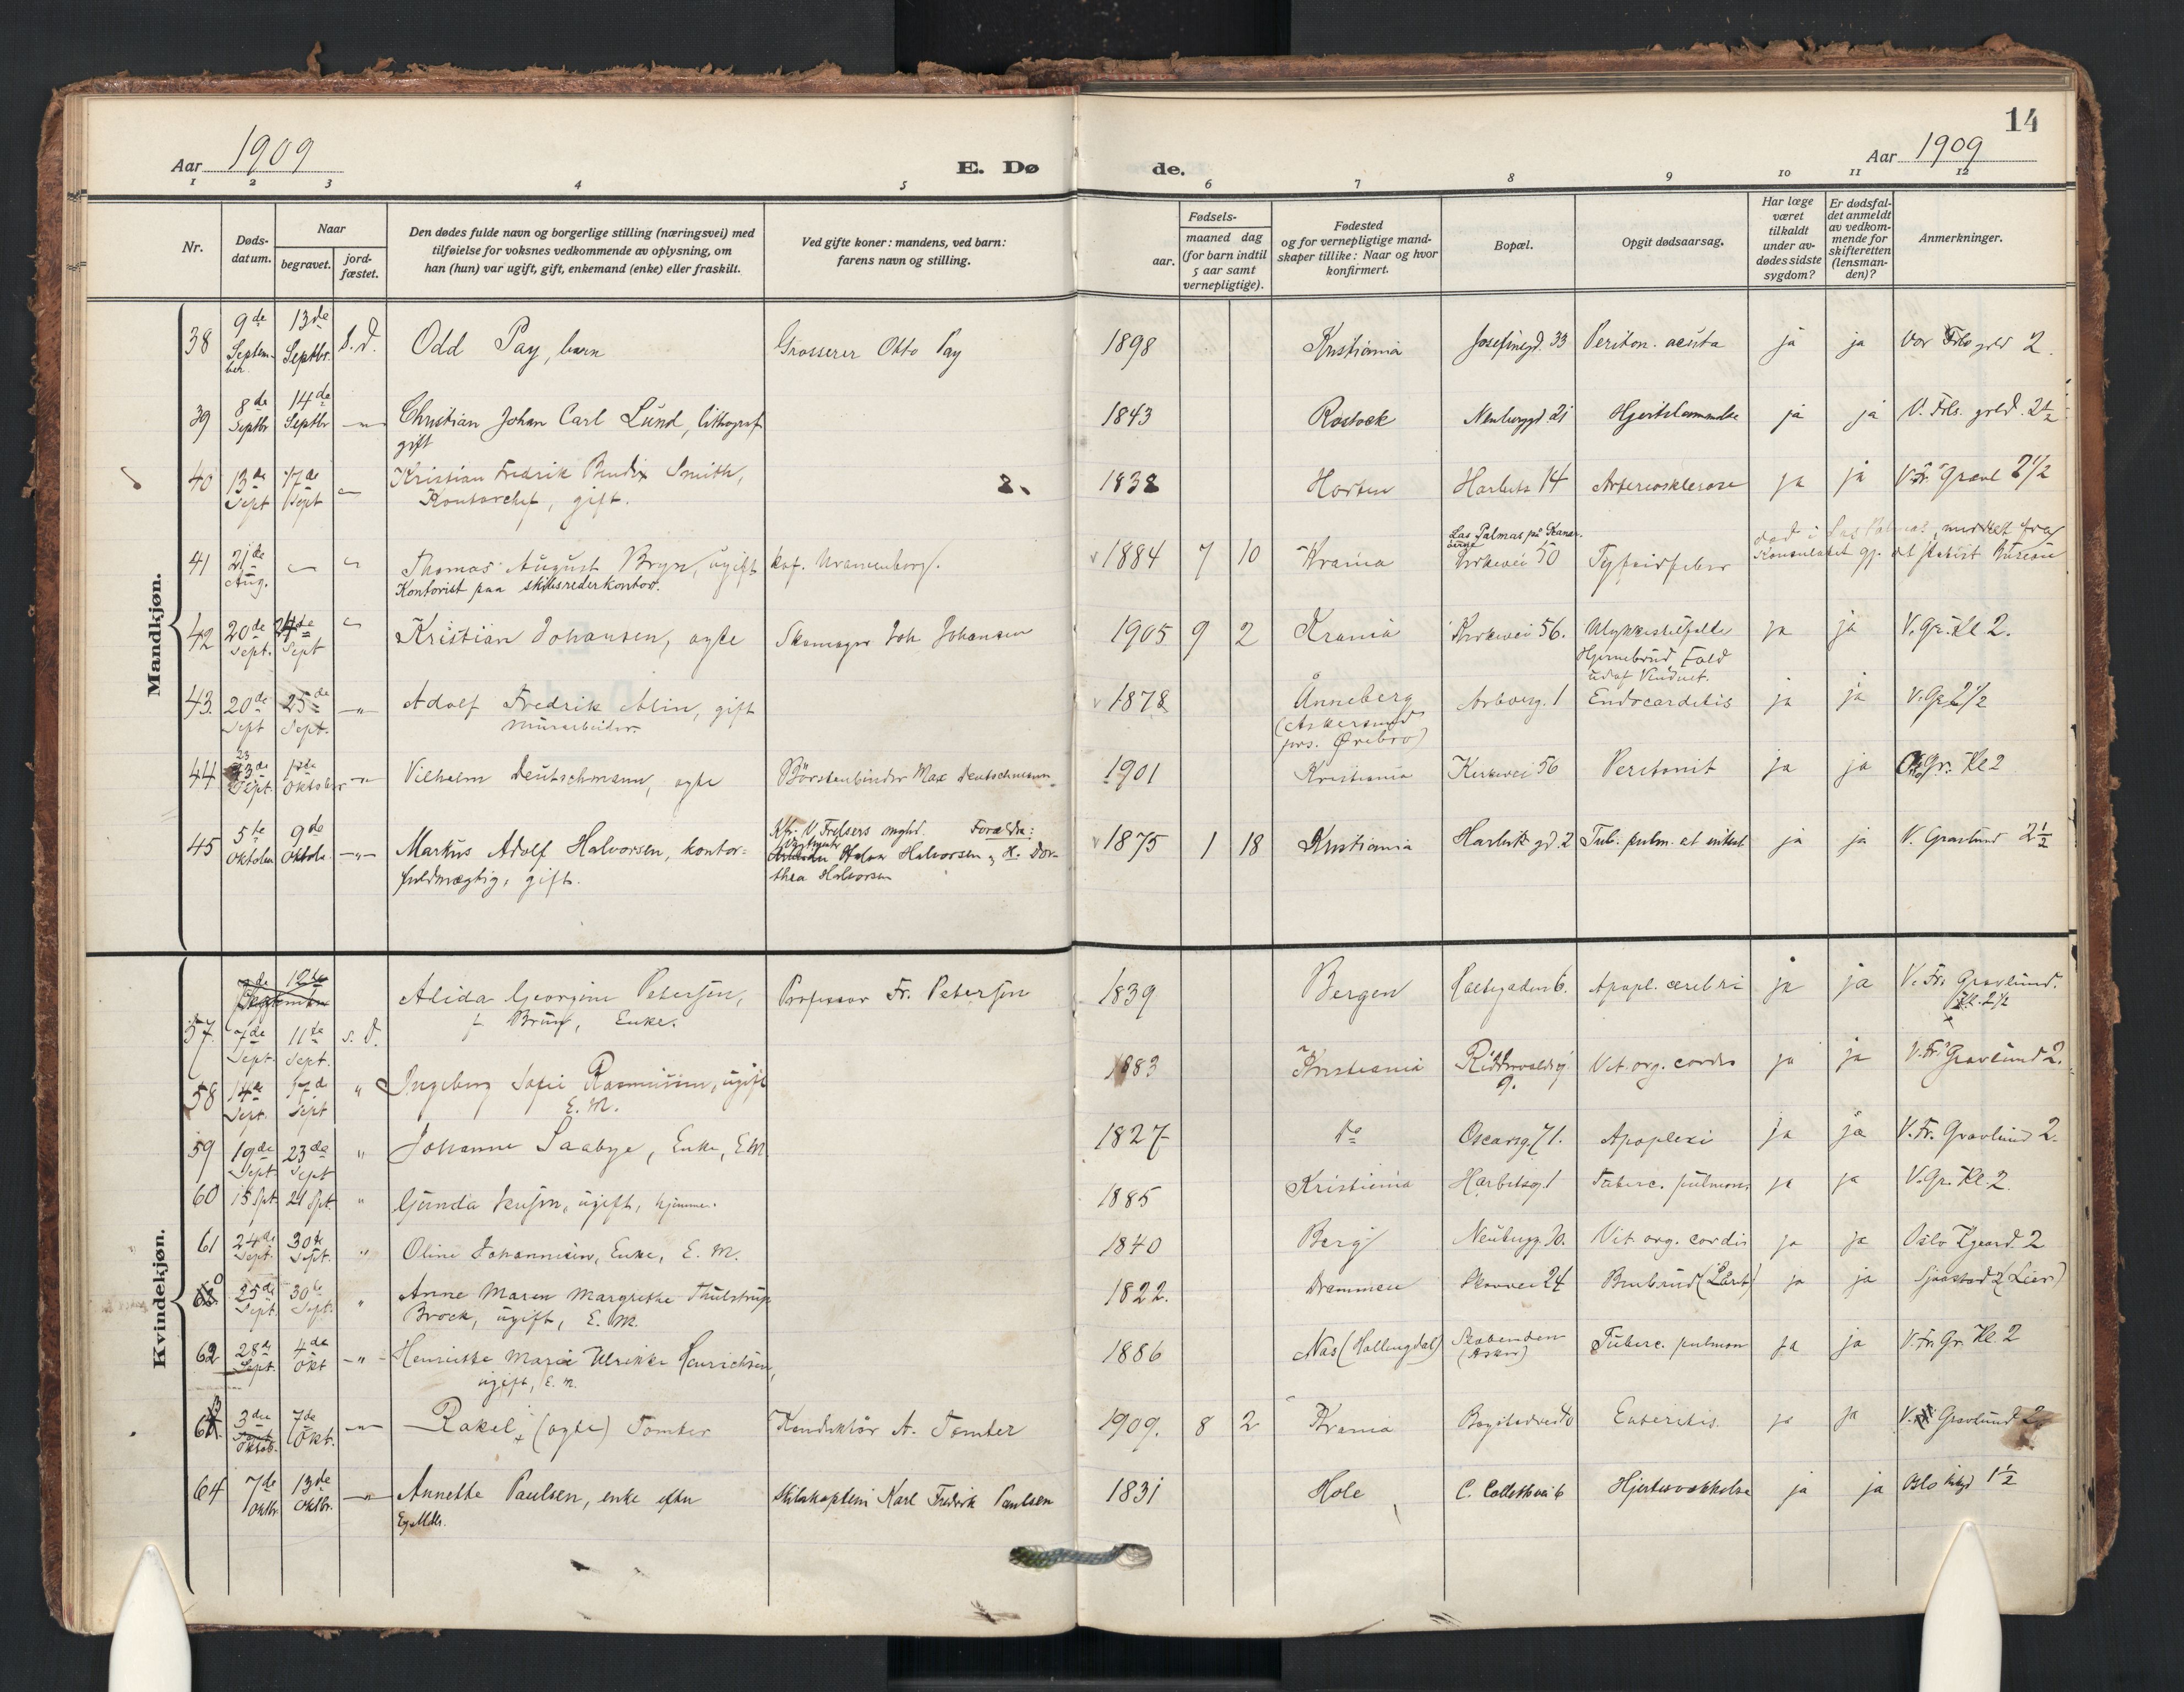 14
Aar 1909
E. Dø
de.
Aar 1909
1 2 3 4 5 6 7 8 9 10 11 12
Nr.
Døds-
datum.
Naar
begravet.
jord-
fæstet.
Den dødes fulde navn og borgerlige stilling (næringsvei) med
tilføielse for voksnes vedkommende av oplysning, om
han (hun) var ugift, gift, enkemand (enke) eller fraskilt.
Ved gifte koner: mandens, ved barn:
farens navn og stilling.
Fødsels-
aar.
maaned dag
(for barn indtil
5 aar samt
vernepligtige).
Fødested
og for vernepligtige mand-
skaper tillike: Naar og hvor
konfirmert.
Bopæl.
Opgit dødsaarsag.
Har læge
været
tilkaldt
under av-
dødes sidste
sygdom?
Er dødsfal-
det anmeldt
av vedkom-
mende for
skifteretten
(lensman-
den)?
Anmerkninger.
Mandkjøn.
38 9de Septem-ber 13de Septbr. s. d. Odd Pay, barn Grosserer Otto Pay 1898 Kristiania Josefinegd. 33 Periton. acuta ja ja Vor Frls grld 2.
39 8de Septbr 14de Septbr -"- Christian Johan Carl Lund, lithograf 1843 Rostock Neuberggd 21 Hjertelammelse ja ja V. Frls. grld. 2½
gift
40 13de Sept 17de Sept -"- Kristian Fredrik Bendix Smith, 1838 Horten Harbitz 14 Arteriosklerose ja ja V. Fr. Gravl 2½
Kontorchef, gift.
41 21de Aug. Thomas August Bryn, ugift kof. Uranienborg. 1884 7 10 Krania Las Palmas på Kanar. øerne Kirkevei 50 Tyfoidfeber død i Las Palmas, meddelt fra
Kontorist paa skibsrederkontor. Konsulatet gj. det statist. Bureau
42 20de Sept. 24de Sept Kristian Johansen, ægte Skomager Joh Johansen 1905 9 2 Krania Kirkevei 56. Ulykkestilfælde ja ja V. Gr. Kl 2.
Hjernebrud, Fald
ud af Vinduet.
43. 20de Sept 25de Sept. -"- Adolf Fredrik Alin, gift 1878 Ånneberg Arboesg. 1 Endocarditis ja ja V. Gr 2½
Murarbeider. (Askersunds
prs. Ørebro)
44 23de Sept. 1ste Oktober -"- Vilhelm Deutschmann, ægte Börstenbinder Max Deutschmann 1901 Kristiania Kirkevei 56 Peritonit ja ja Gr. Kl 2
45 5te Oktober 9de Oktob. -"- Markus Adolf Halvorsen, kontor- Kfr. V Frelsers mghd. Forældre: 1875 1 18 Kristiania Harbitz gd. 2 Tub. pulm. et intest ja ja V. Gravlund 2½
fuldmægtig, gift. Halvor Halvorsen & H. Dor-
thea Halvorsen
Kvindekjøn.
57. 7de Sept. 11te Sept. s. d. Alida Georgine Petersen, Professor Fr. Petersen 1839 Bergen Holtegaden 6. Apopl. cerebri ja ja V. Fr. Gravlund.
f Brun, Enke. Kl. 2½
58 14de Sept. 17de Sept " Ingeborg Sofie Rasmussen, ugift 1883 Kristiania Riddervoldsg. 9. Vit. org. cordis ja ja V. Fr. Gravlund 2.
E. M.
59 19de Sept 23de Sept " Johanne Saabye, Enke, E M 1827 do Oscarsg. 71. Apoplexi ja ja V. Fr. Gravlund 2.
60 15 Spt. 21 Spt. " Gunda Jensen, ugift, hjemme. 1885 Kristiania Harbitzg. 1 Tuberc. pulmon. ja ja V. Gr. Kl. 2
61 24de Sept. 30te Sept. " Oline Johannesen, Enke, E. M. 1840 Berg Neubergg. 10. Vit. org. cordis ja ja Oslo Kgaard. 2
25de Sept 30te Sept. " Anne Maren Margrethe Thulstrup 1822. Drammen Skovvei 24 Benbrud (Lårb) ja ja Sjaastad 2 (Lier)
Brock, ugift, E. M.
62 28de Sept. 4de Okt -"- Henriette Marie Ulrikke Henrichsen, 1886 Nas (Hallingdal) (Asker) Tuberc. pulmon ja ja V. Fr. Gr. Kl. 2
ugift, E. M.
63 3die Oktob. 7de Okt. -"- Rakel (ægte) Tomter Konduktör A. Tomter 1909. 8 2 Krania Enteritis. ja ja V. Gravlund 2
64 7de Oktbr. 13de Oktbr. -"- Annette Paulsen, enke efter Skibskaptein Karl Fredrik Paulsen 1831 Hole C. Collettsvei 6 Hjertesvækkelse ja ja Oslo kirkgd 1½